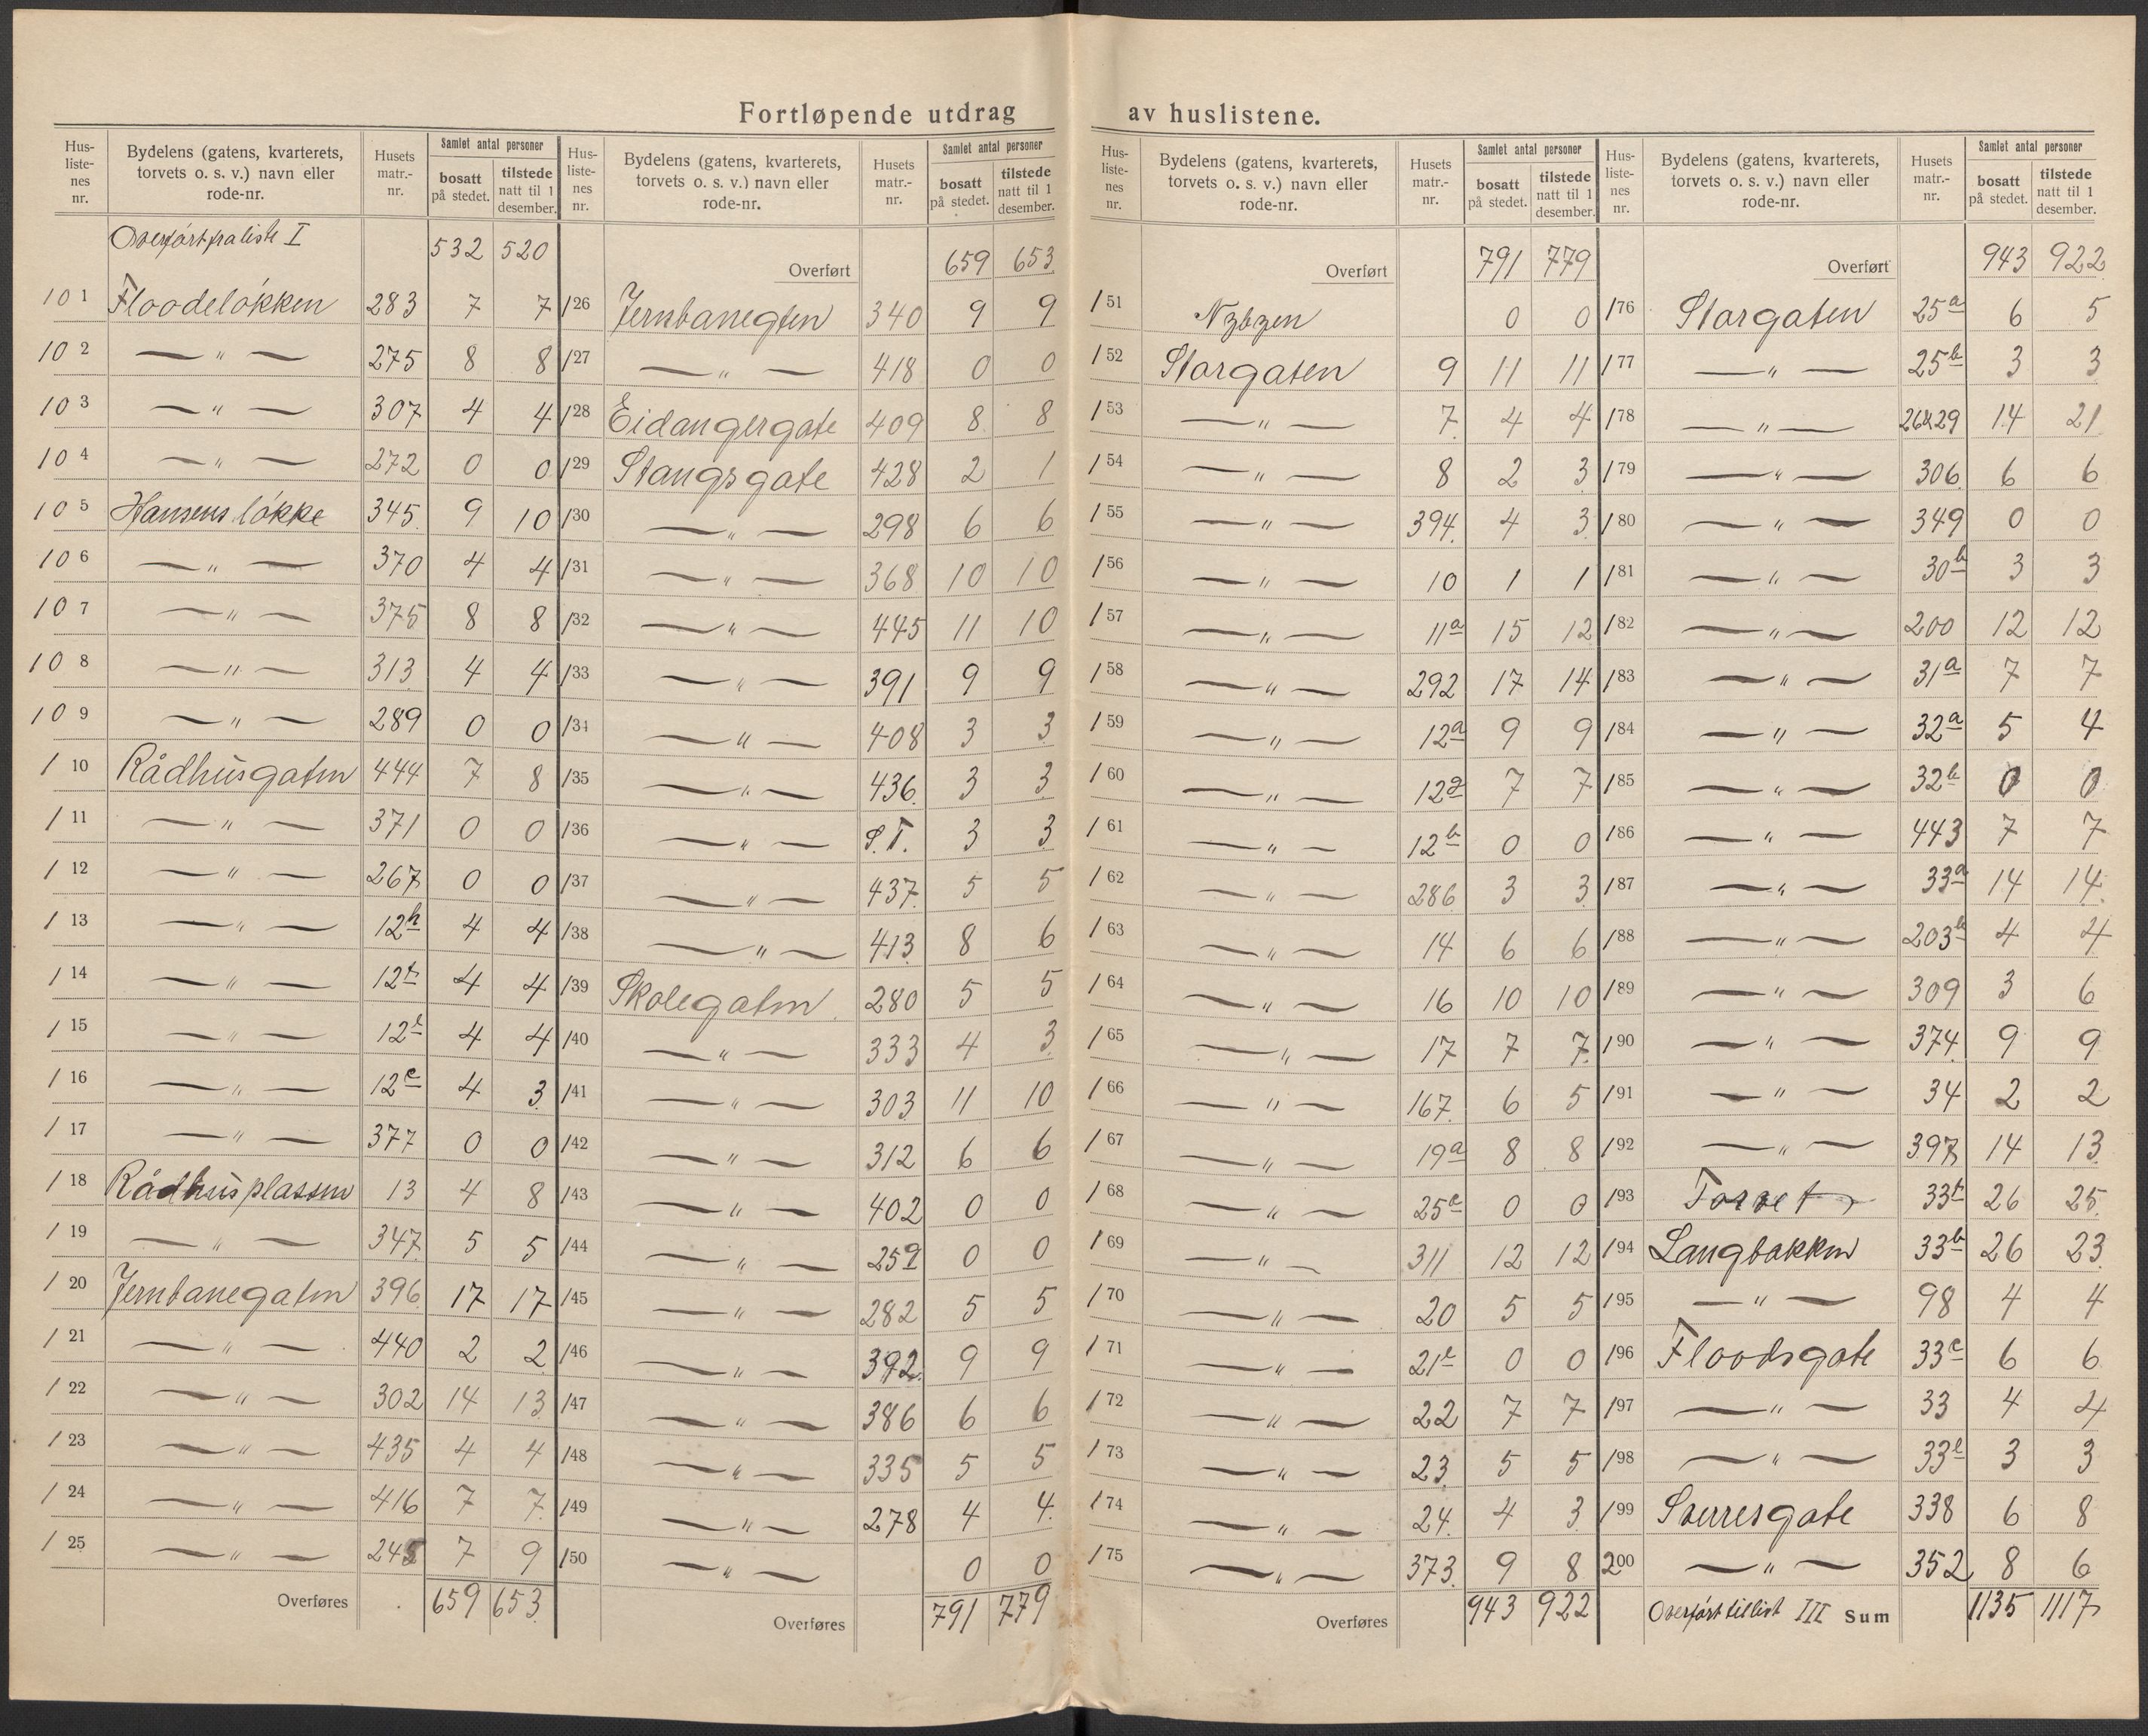 Fortløpende utdrag av huslistene.
Hus-listenes nr. | Bydelens (gatens, kvarterets, torvets o. s. v.) navn eller rode-nr. | Husets matr.-nr. | Samlet antal personer bosatt på stedet. | tilstede natt til 1 desember.
Overført fra liste I 532 520
101 Floodeløkken 283 7 7
102 — " — 275 8 8
103 — " — 307 4 4
104 — " — 272 0 0
105 Hansens løkke 345 9 10
106 — " — 370 4 4
107 — " — 375 8 8
108 — " — 313 4 4
109 — " — 289 0 0
110 Rådhusgaten 444 7 8
111 — " — 371 0 0
112 — " — 267 0 0
113 — " — 12h 4 4
114 — " — 12t 4 4
115 — " — 12l 4 4
116 — " — 12e 4 3
117 — " — 377 0 0
118 Rådhusplassen 13 4 8
119 — " — 347 5 5
120 Jernbanegaten 396 17 17
121 — " — 440 2 2
122 — " — 302 14 13
123 — " — 435 4 4
124 — " — 416 7 7
125 — " — 245 7 9
Overføres 659 653
Hus-listenes nr. | Bydelens (gatens, kvarterets, torvets o. s. v.) navn eller rode-nr. | Husets matr.-nr. | Samlet antal personer bosatt på stedet. | tilstede natt til 1 desember.
Overført 659 653
126 Jernbanegten 340 9 9
127 — " — 418 0 0
128 Eidangergate 409 8 8
129 Stangsgate 428 2 1
130 — " — 298 6 6
131 — " — 368 10 10
132 — " — 445 11 10
133 — " — 391 9 9
134 — " — 408 3 3
135 — " — 436 3 3
136 — " — S.T. 3 3
137 — " — 437 5 5
138 — " — 413 8 6
139 Skolegaten 280 5 5
140 — " — 333 4 3
141 — " — 303 11 10
142 — " — 312 6 6
143 — " — 402 0 0
144 — " — 259 0 0
145 — " — 282 5 5
146 — " — 392 9 9
147 — " — 386 6 6
148 — " — 335 5 5
149 — " — 278 4 4
150 — " — 0 0
Overføres 791 779
Hus-listenes nr. | Bydelens (gatens, kvarterets, torvets o. s. v.) navn eller rode-nr. | Husets matr.-nr. | Samlet antal personer bosatt på stedet. | tilstede natt til 1 desember.
Overført 791 779
151 Nybyen 0 0
152 Storgaten 9 11 11
153 — " — 7 4 4
154 — " — 8 2 3
155 — " — 394 4 3
156 — " — 10 1 1
157 — " — 11a 15 12
158 — " — 292 17 14
159 — " — 12a 9 9
160 — " — 12g 7 7
161 — " — 12b 0 0
162 — " — 286 3 3
163 — " — 14 6 6
164 — " — 16 10 10
165 — " — 17 7 7
166 — " — 167 6 5
167 — " — 19a 8 8
168 — " — 25c 0 0
169 — " — 311 12 12
170 — " — 20 5 5
171 — " — 21l 0 0
172 — " — 22 7 7
173 — " — 23 5 5
174 — " — 24 4 3
175 — " — 373 9 8
Overføres 943 922
Hus-listenes nr. | Bydelens (gatens, kvarterets, torvets o. s. v.) navn eller rode-nr. | Husets matr.-nr. | Samlet antal personer bosatt på stedet. | tilstede natt til 1 desember.
Overført 943 922
176 Storgaten 25a 6 5
177 — " — 25b 3 3
178 — " — 26&29 14 21
179 — " — 306 6 6
180 — " — 349 0 0
181 — " — 30b 3 3
182 — " — 200 12 12
183 — " — 31a 7 7
184 — " — 32a 5 4
185 — " — 32b 0 0
186 — " — 443 7 7
187 — " — 33a 14 14
188 — " — 203b 4 4
189 — " — 309 3 6
190 — " — 374 9 9
191 — " — 34 2 2
192 — " — 397 14 13
193 Torvet 33t 26 25
194 Langbakken 33b 26 23
195 — " — 98 4 4
196 Floodsgate 33c 6 6
197 — " — 33 4 4
198 — " — 33l 3 3
199 Sverresgate 338 6 8
200 — " — 352 8 6
Overført til list III Sum 1135 1117